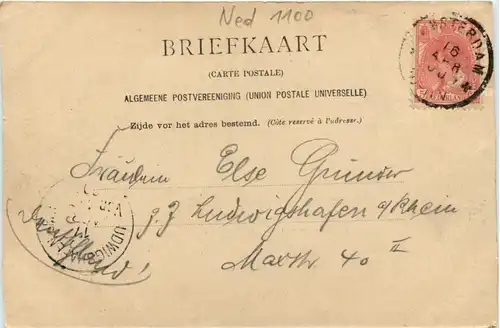 Ned 1100
BRIEFKAART
(CARTE POSTALE)
ALGEMEENE POSTVEREENIGING (UNION POSTALE UNIVERSELLE)
Zijde voor het adres bestemd. (Côté réservé à l'adresse.)
Fräulein Else Grunder
z. Z. Ludwigshafen a/Rhein
Maxstr. 40 II